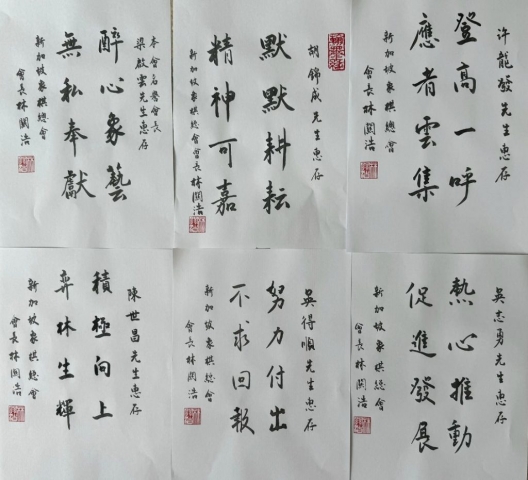 本會名譽會長
梁啟雲先生惠存
醉心象藝
無私奉獻
新加坡象棋總會
會長林關浩
胡錦成先生惠存
默默耕耘
精神可嘉
新加坡象棋總會會長林關浩
許龍發先生惠存
登高一呼
應者雲集
新加坡象棋總會
會長林關浩
陳世昌先生惠存
積極向上
弈林生輝
新加坡象棋總會
會長林關浩
吳得順先生惠存
努力付出
不求回報
新加坡象棋總會
會長林關浩
吳志勇先生惠存
熱心推動
促進發展
新加坡象棋總會
會長林關浩